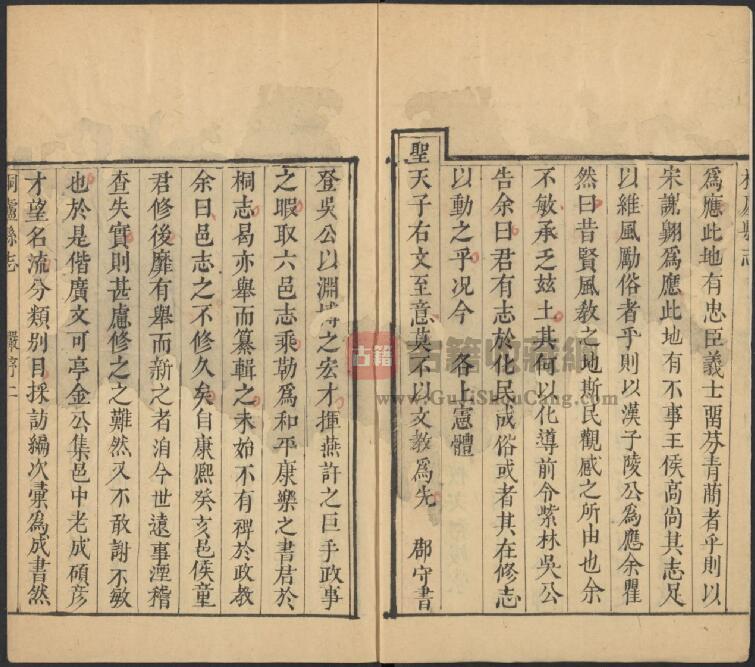 爲應此地有忠臣義士畱芬青蕳者乎則以
宋謝翺爲應此地有不事王侯高尚其志足
以維風勵俗者乎則以漢子陵公爲應余瞿
然曰昔賢風敎之地斯民觀感之所由也余
不敏承乏兹土其何以化導前令紫林吳公
告余曰君有志於化民成俗或者其在修志
以動之乎况今 各上憲體
聖天子右文至意莫不以文教爲先 郡守書
登吳公以淵博之宏才揮燕許之巨手政事
之暇取六邑志乘勒爲和平康樂之書君於
桐志曷亦舉而纂輯之未始不有裨於政教
余曰邑志之不修久矣自康熙癸亥邑侯童
君修後靡有舉而新之者洎今世遠事湮稽
查失實則甚慮修之之難然又不敢謝不敏
也於是偕廣文可亭金公集邑中老成碩彦
才望名流分類别目採訪編次彙爲成書然
桐廬縣志 嚴序 二
古籍
古籍收藏網
www.GujiShouCang.com